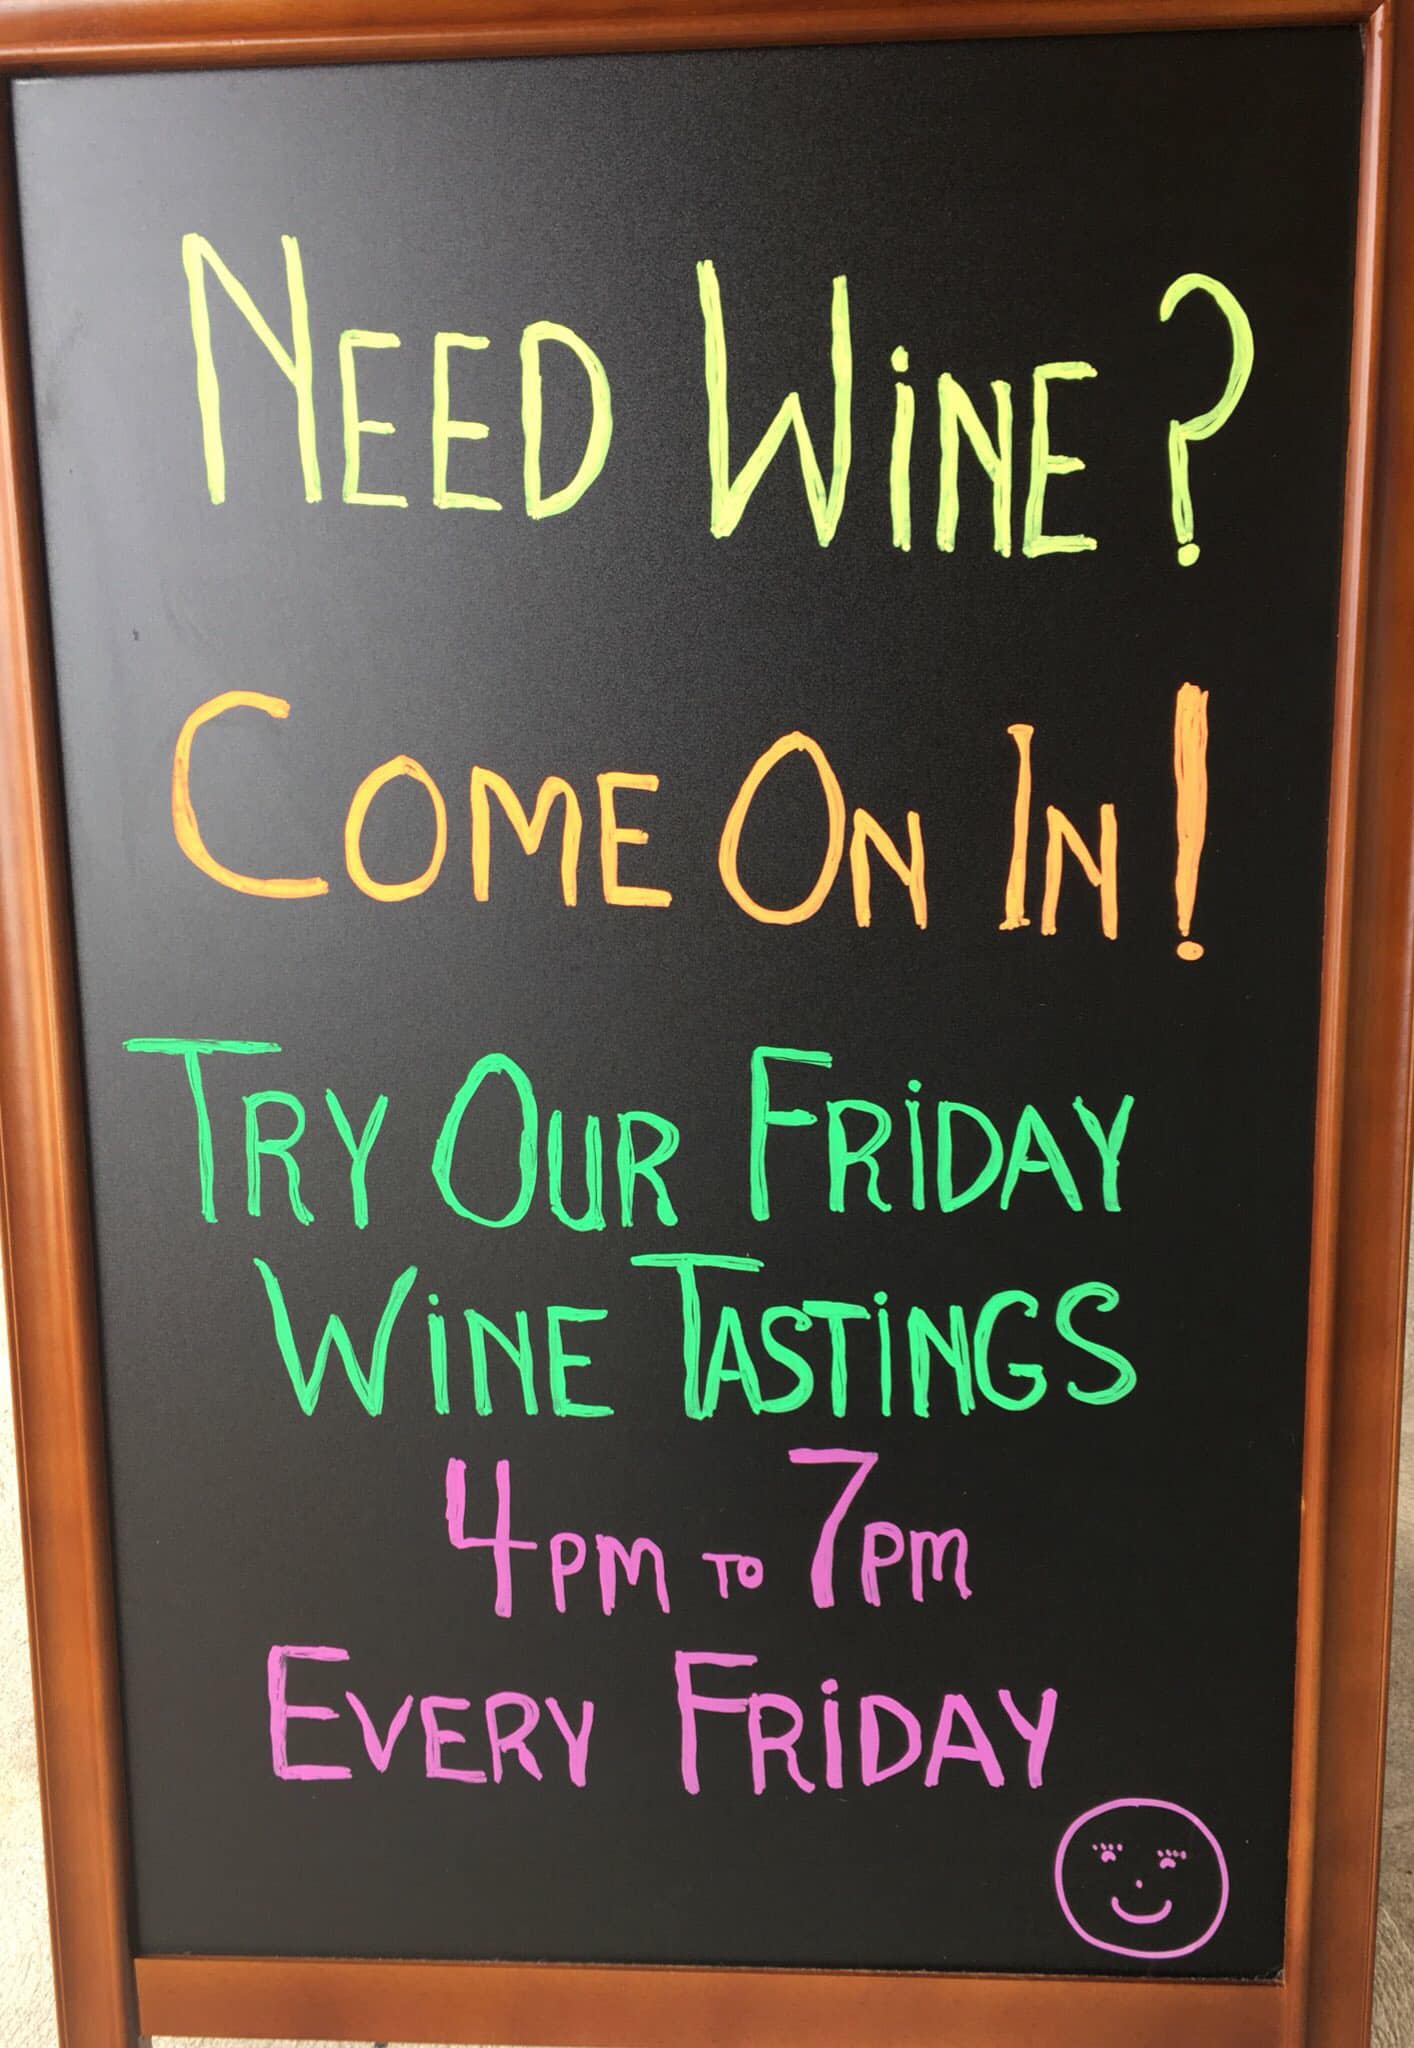 NEED WiNE?
COME ON IN!
TRY OUR FRiDAY
WiNE TASTiNGS
4PM TO 7PM
EVERY FRiDAY